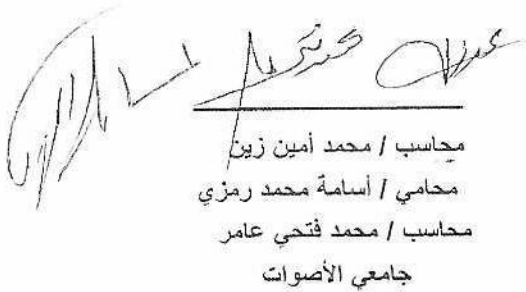 محاسب / محمد أمين زين
محامي / أسامة محمد رمزي
محاسب / محمد فتحي عامر
جامعي الأصوات